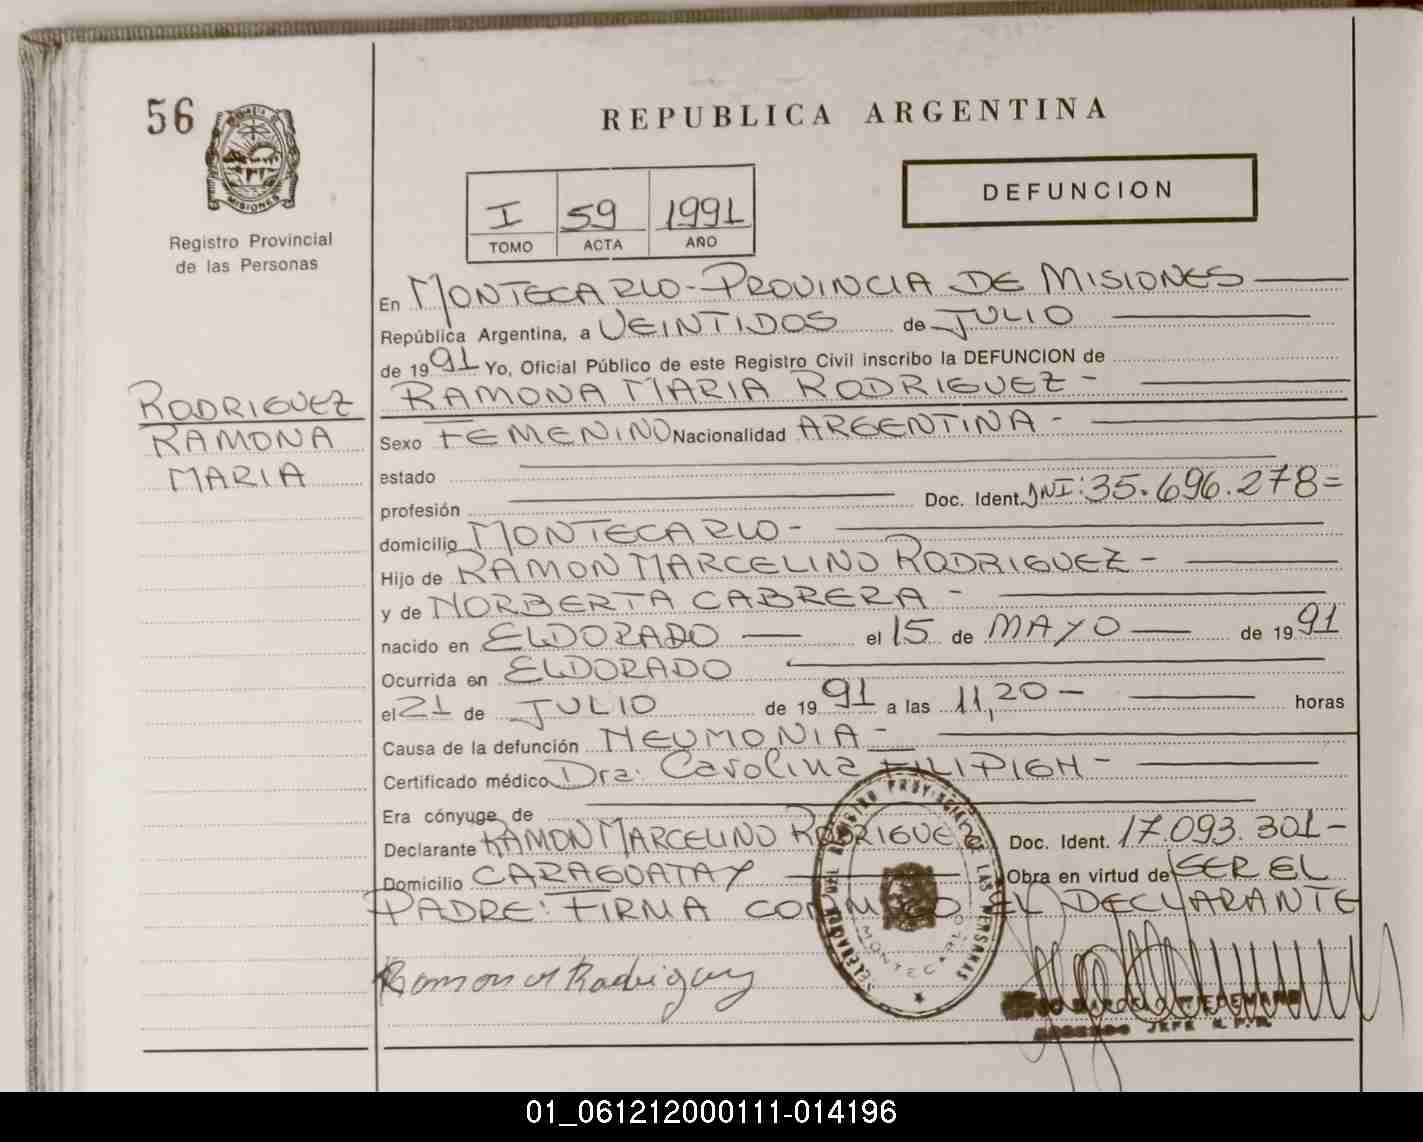 56
PROVINCIA D
MISIONES
Registro Provincial
de las Personas
REPUBLICA ARGENTINA
DEFUNCION
I 59 1991
TOMO ACTA AÑO
RODRIGUEZ
RAMONA
MARIA
En MONTECARLO-PROVINCIA DE MISIONES
República Argentina, a VEINTIDOS de JULIO
de 1991 Yo, Oficial Público de este Registro Civil inscribo la DEFUNCION de
RAMONA MARIA RODRIGUEZ-
Sexo FEMENINO Nacionalidad ARGENTINA-
estado
profesión Doc. Ident. DNI: 35.696.278=
domicilio MONTECARLO-
Hijo de RAMON MARCELINO RODRIGUEZ-
y de NORBERTA CABRERA-
nacido en ELDORADO el 15 de MAYO de 1991
Ocurrida en ELDORADO
el 21 de JULIO de 1991 a las 11,20- horas
Causa de la defunción NEUMONIA-
Certificado médico Dra: Carolina FILIPIGH-
Era cónyuge de
Declarante RAMON MARCELINO RODRIGUEZ Doc. Ident. 17.093.301-
Domicilio CARAGUATAY Obra en virtud de SER EL
PADRE: FIRMA CONMIGO EL DECLARANTE
DEL REGISTRO PROVINCIAL DE LAS PERSONAS
MONTECARLO
Ramon M Rodriguez
JEFE R. P. P.
01_061212000111-014196